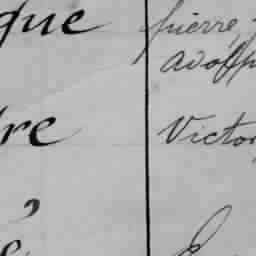 que pierre,
adolp
re Victor
é